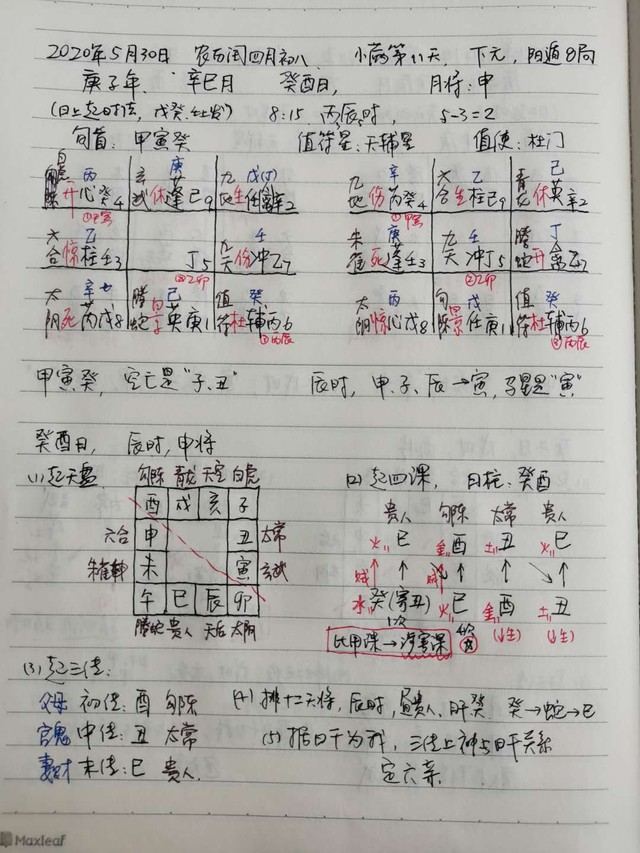 2020年5月30日 农历闰四月初八 小满第11天, 下元, 阳遁8局
庚子年, 辛巳月 癸酉日, 月将:申
(日上起时法, 戊癸壬上发) 8:15 丙辰时, 5-3=2
旬首: 甲寅癸 值符星:天辅星 值使:杜门
白虎 勾陈 丙 开心癸4 玄武 庚 休蓬己9 九地 戊(丁) 生任辛2
六合 乙 惊柱壬3 丁5 九天 壬 伤冲乙7
太阴 辛 死芮戊8 腾蛇 己 英庚1 值符 癸 杜辅丙6
①甲寅 ②乙卯 ③丙辰
九地 辛 伤芮癸4 六合 乙 生柱己9 青龙 己 休英辛2
朱雀 庚 死蓬壬3 九天 壬 冲丁5 腾蛇 丁 开禽乙7
太阴 丙 惊心戊8 勾陈 戊 景任庚1 值符 癸 杜辅丙6
①甲寅 ②乙卯 ③丙辰
甲寅癸, 空亡是"子、丑" 辰时, 申、子、辰→寅, 马星是"寅"
癸酉日, 辰时, 申将
(1)起天盘
勾陈 青龙 天空 白虎
酉 戌 亥 子
六合 申 丑 太常
朱雀 未 寅 玄武
午 巳 辰 卯
腾蛇 贵人 天后 太阴
(2)起四课, 日柱:癸酉
贵人 勾陈 太常 贵人
火 巳 金 酉 土 丑 火 巳
贼 贼
水 癸(寄丑) 火 巳 金 酉 土 丑
1次 (↓生) (↓生)
比用课→涉害课
(3)起三传:
父母 初传:酉 勾陈
官鬼 中传:丑 太常
妻财 末传:巳 贵人.
(4)排十二天将, 辰时, 昼贵人、日干癸 癸→蛇→巳
(5)据日干为我, 三传上神与日干关系
定六亲.
Maxleaf